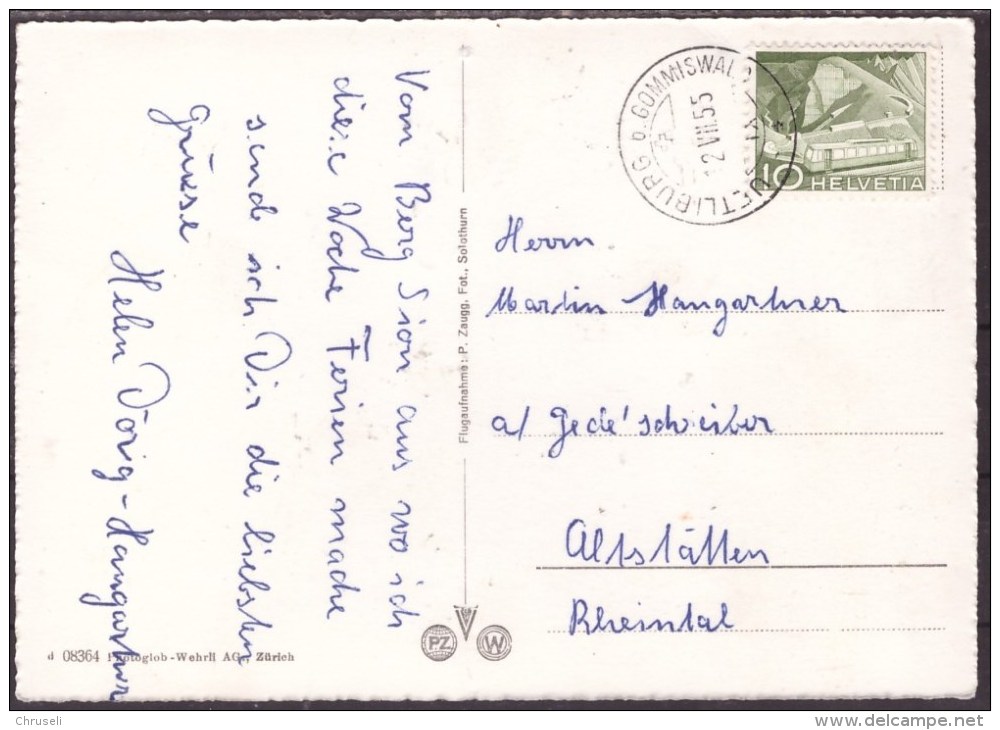 Vom Berg Sion aus wo ich
diese Woche Ferien mache
sende ich Dir die liebsten
Grüsse
Helen Dörig-Hangartner
Flugaufnahme: P. Zaugg, Fot., Solothurn
UETLIBURG b. GOMMISWALD
2 VIII 55
10 HELVETIA
Herrn
Martin Hangartner
a/ Gede'schreiber
Altstätten
Rheintal
PZ
W
d 08364 Photoglob-Wehrli AG., Zürich
Chruseli
www.delcampe.net